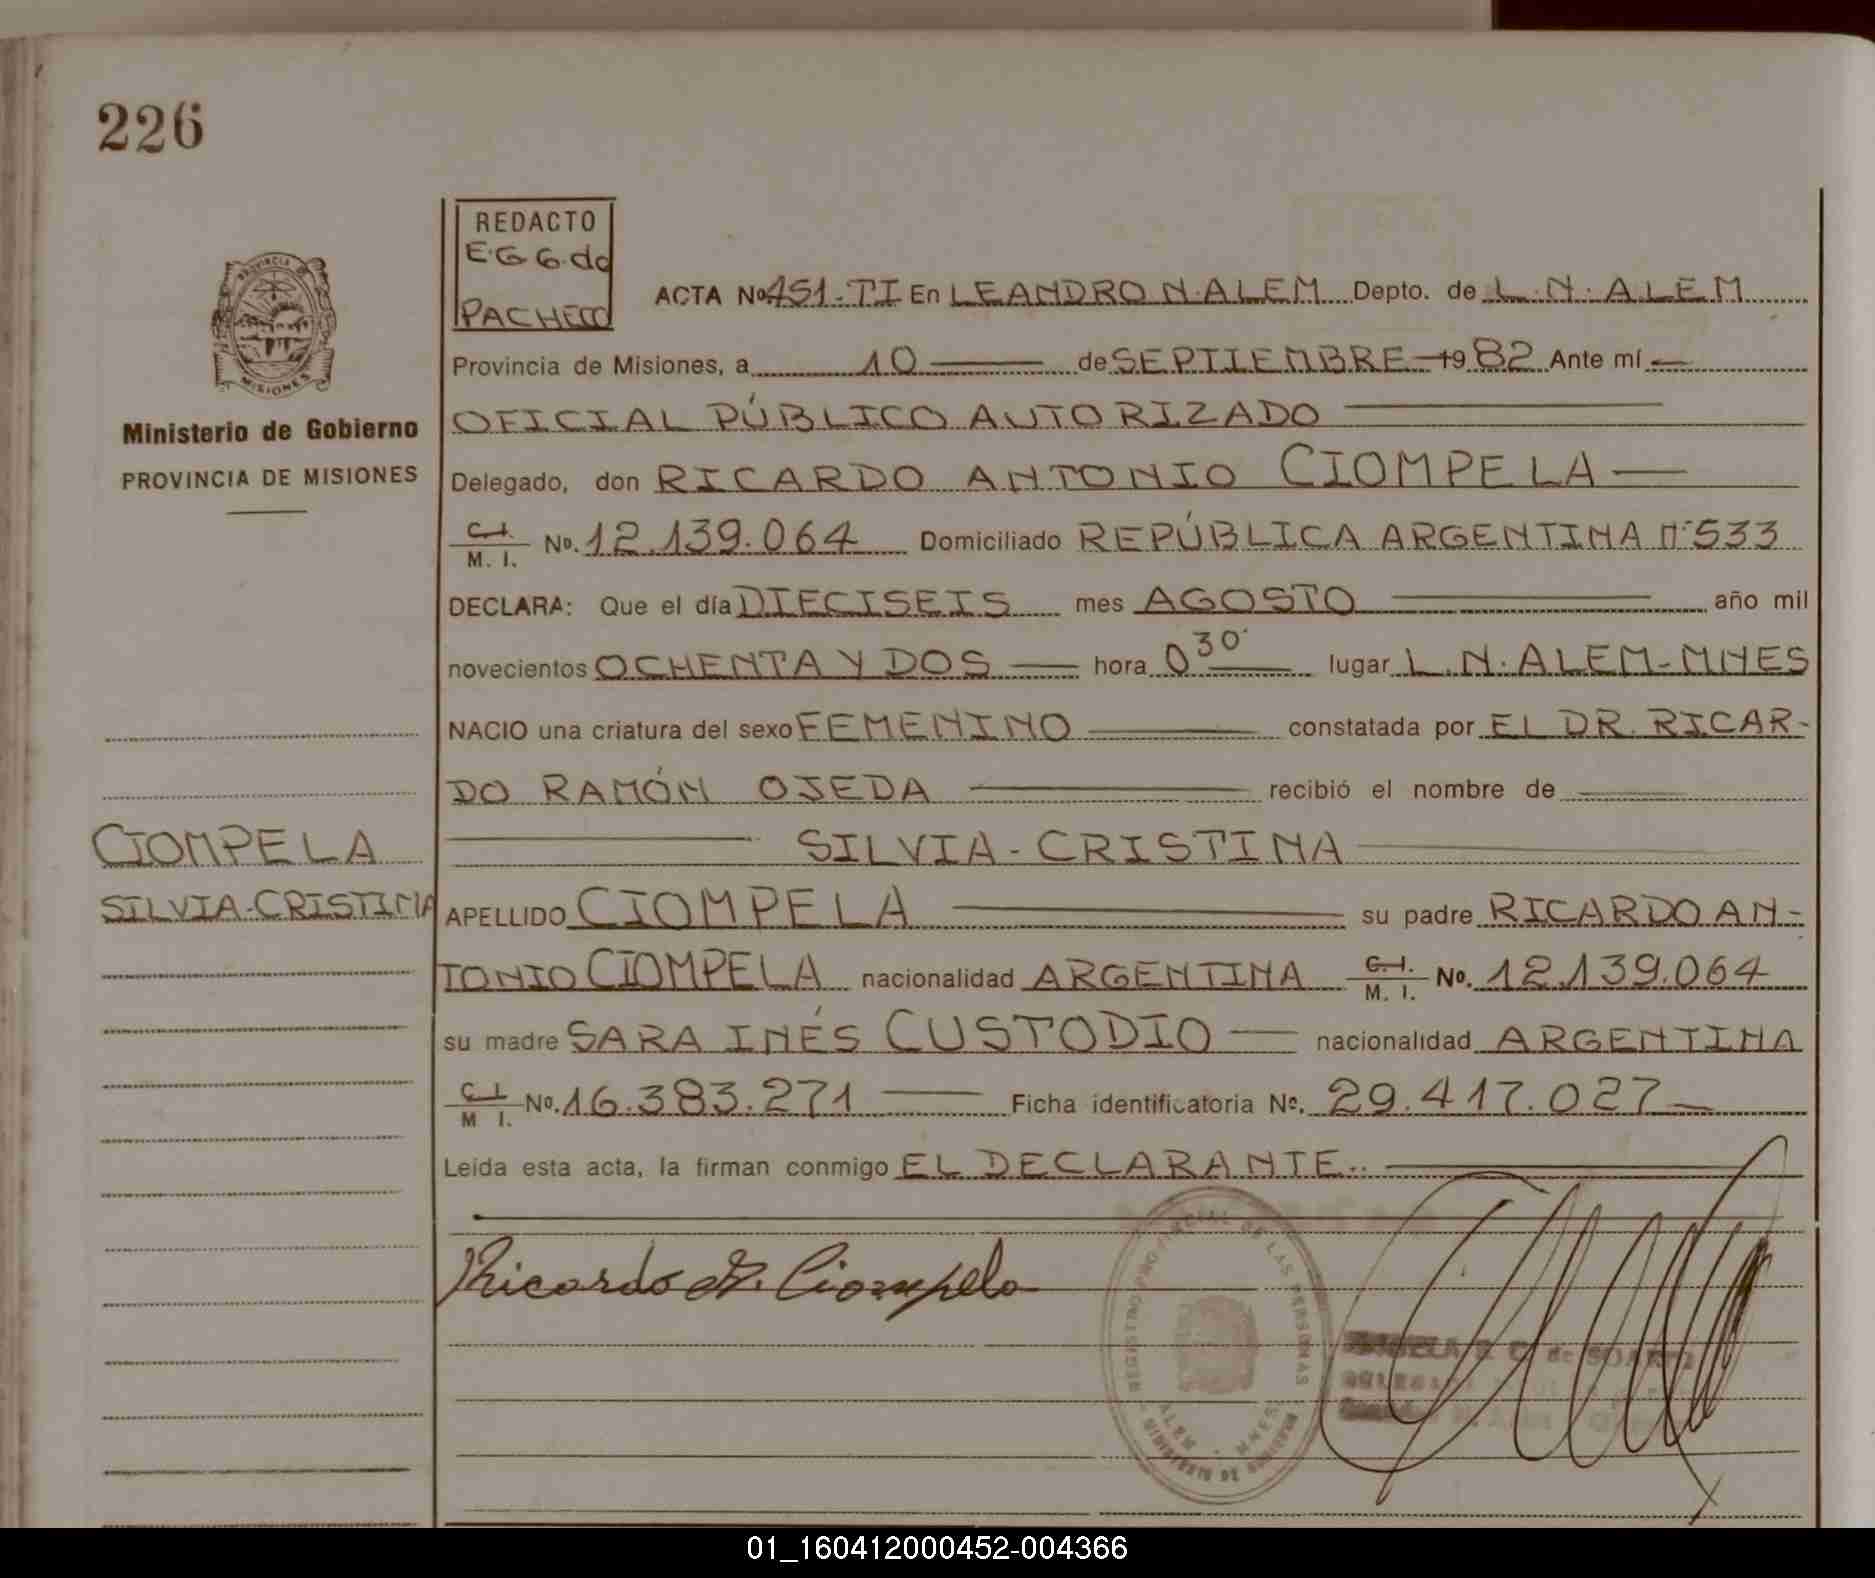 226
REDACTO
E.G G.de
PACHECO
ACTA Nº 451-TI En LEANDRO N.ALEM Depto. de L.N.ALEM
Provincia de Misiones, a 10 de SEPTIEMBRE 1982 Ante mí
OFICIAL PÚBLICO AUTORIZADO
PROVINCIA DE
MISIONES
Ministerio de Gobierno
PROVINCIA DE MISIONES
Delegado, don RICARDO ANTONIO CIOMPELA
C.I. M. I. Nº. 12.139.064 Domiciliado REPÚBLICA ARGENTINA Nº533
DECLARA: Que el día DIECISEIS mes AGOSTO año mil
novecientos OCHENTA Y DOS hora 0 30' lugar L.N.ALEM-MNES
NACIO una criatura del sexo FEMENINO constatada por EL DR. RICAR-
DO RAMÓN OJEDA recibió el nombre de
SILVIA-CRISTINA
CIOMPELA
SILVIA-CRISTINA
APELLIDO CIOMPELA su padre RICARDO AN-
TONIO CIOMPELA nacionalidad ARGENTINA C.I. M. I. Nº. 12.139.064
su madre SARA INÉS CUSTODIO nacionalidad ARGENTINA
C.I. M I. Nº. 16.383.271 Ficha identificatoria Nº. 29.417.027
Leída esta acta, la firman conmigo EL DECLARANTE..
Ricardo A. Ciompela
REGISTRO PROVINCIAL DE LAS PERSONAS
ALEM - MNES.
MINISTERIO DE GOBIERNO
de SOARES
01_160412000452-004366